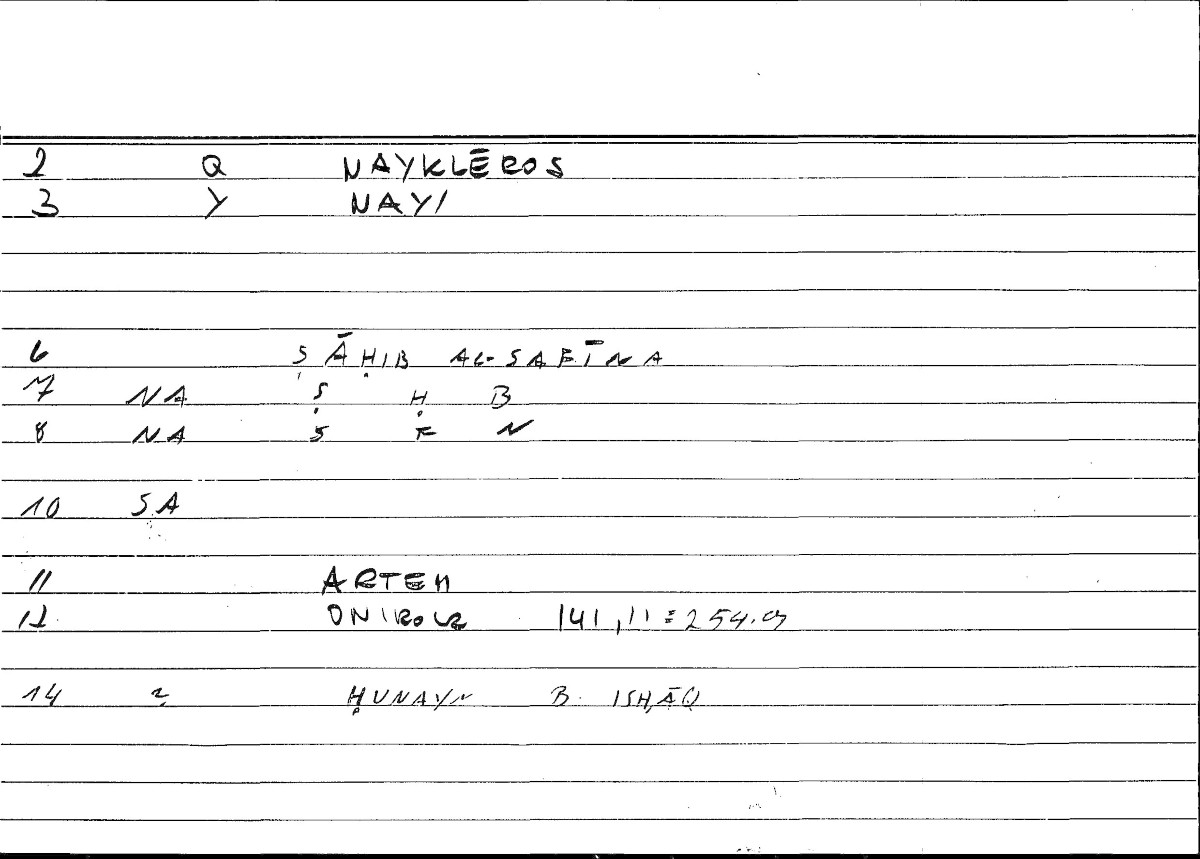 2 Q NAYKLĒROS
3 Y NAY/
6 ṢĀḤIB AL-SAFĪNA
7 NA Ṣ Ḥ B
8 NA S F N
10 SA
11 ARTEM
12 ONIROCR 141,11 = 254.9
14 2 ḤUNAYN B. ISḤĀQ